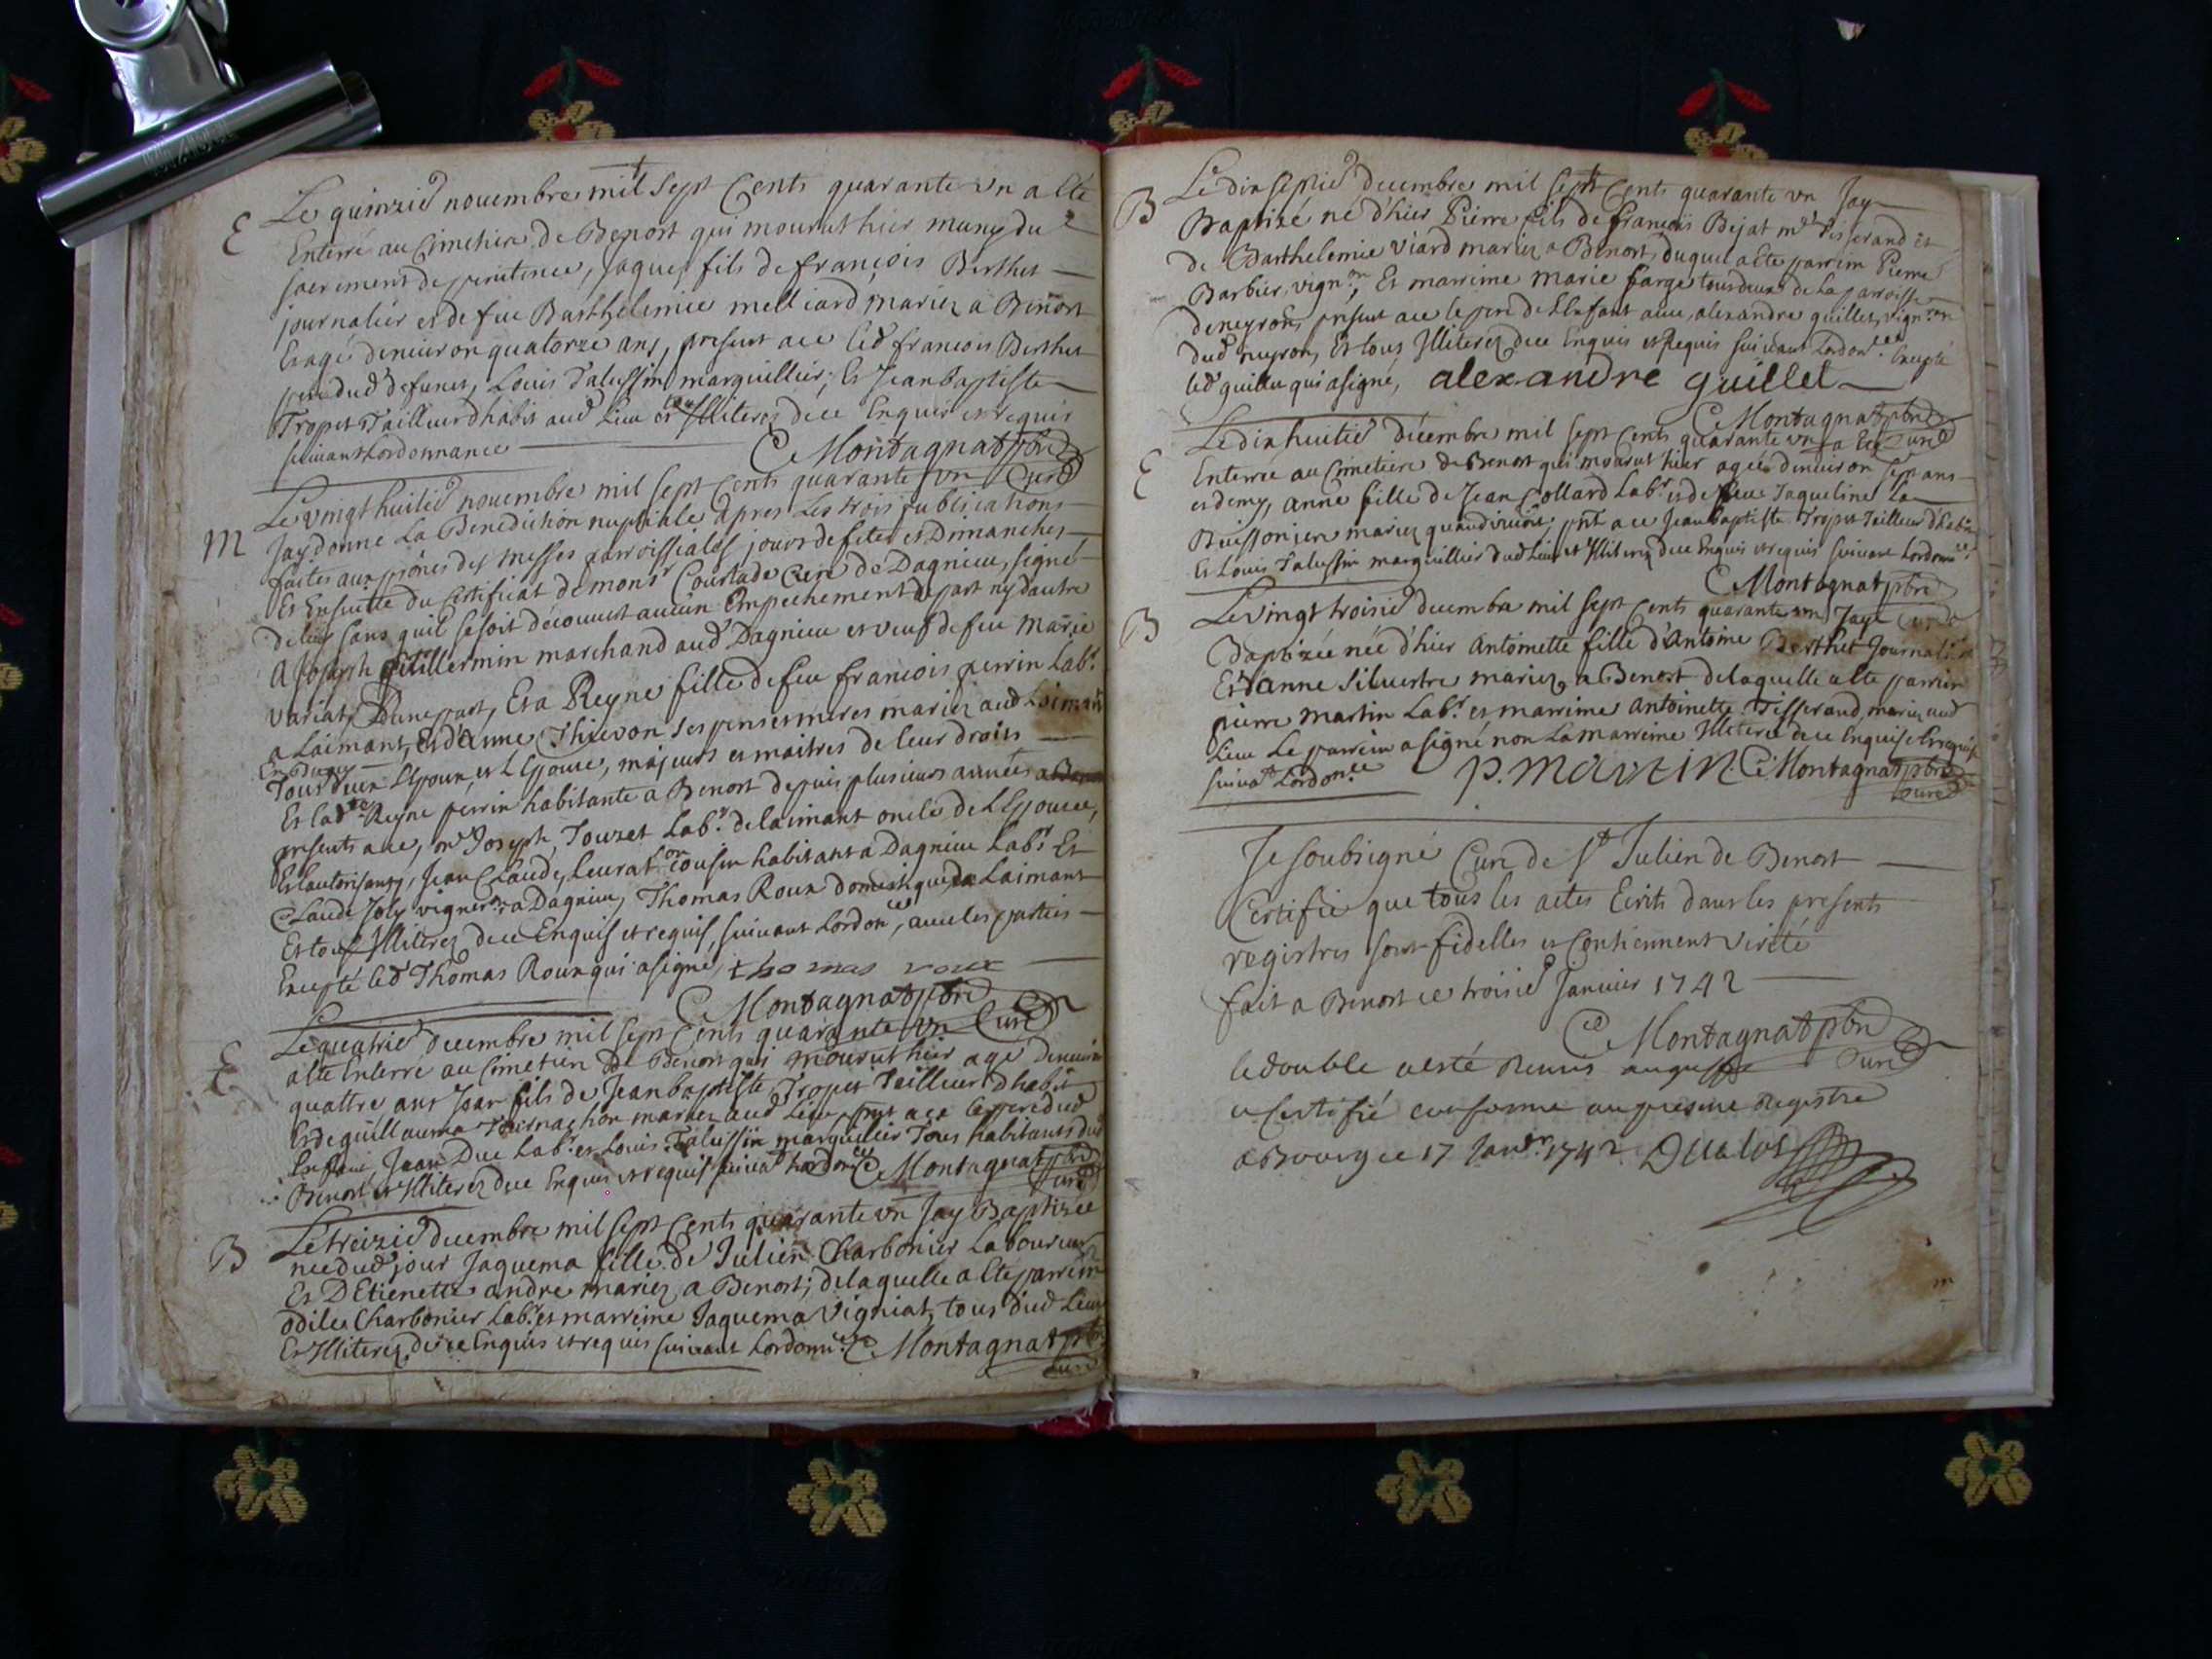 Le quinzie novembre mil sept Cents quarante un a êté
E
Enterré au Cimetiere de Benost qui mourut hier muny du
sacrement de penitence, Jaques fils de françois Berthet
journalier et de fue Barthelemie melliard mariez a Benost
Et agé denuiron quatorze ans, present ace led francois Berthet
pere dud defunct, Louis Talussin marguillier, Et Jean baptiste
Tropet Tailleur dhabit aud Lieu et tous Illiterez dece Enquis et requis
suivant Lordonnance
C Montagnat pbre
Curé
Le vingt huitie novembre mil sept Cents quarante un
M
Jay donne La Benediction nuptiale apres Les trois publications
faites aux prônes des messes parroissiales jours de fetes et Dimanches
Et Ensuitte du Certificat de monsr Courtade Curé de Dagnieu, signé
deluy sans quil se soit découvert aucun Empechement de part ny dautre
A Joseph guillermin marchand aud Dagnieu et veuf de feu Marie
variat, Dune part, Et a Reyne fille de feu francois perrin Labr
a Laimant, Et d'anne Thievon ses pere et meres mariez aud Laimant
En Bugey
Tous deux L'Epoux, et L'Epouse, majeurs et maitres de leur droits
Et lad Reyne perrin habitante a Benost depuis plusieurs années
presents ace, mr Joseph Touzet Labr de laimant oncle de L'Epouse,
Jean Claude Leurat son Cousin habitant a Dagnieu Labr Et
Claude Joly vigneron a Dagnieu, Thomas Roux domestique de Laimant
Et tous Illiterez dece Enquis et requis, suivant Lordonce, avec les parties
Excepté led Thomas Roux qui a signé, thomas roux
C Montagnat pbre
Curé
Le quatrie decembre mil sept Cents quarante un
E
a êté Enterré au Cimetiere de Benost qui mourut hier agé denuiron
quattre ans Jean fils de Jean baptiste Tropet Tailleur dhabit
Et de guillauma Tournachon mariez aud Lieu pnt ace Le pere dud
Enfant, Jean Duc Labr et Louis Talussin marguillier Tous habitants dud
Benost et Illiterez dece Enquis et requis suivat Lordonce C Montagnat pbre
Curé
Le treizie decembre mil sept Cents quarante un Jay Baptizée
B
née dud jour Jaquema fille de Julien Charbonier Laboureur
Et D'Etienette andre mariez a Benost; de laquelle a êté parrein
odilee Charbonier Labr et marreine Jaquema Vigniat, tous dud Lieu
Et Illiterez, de ce Enquis et requis suivant Lordonnce C Montagnat pbre
Curé
Le dix septie decembre mil sept Cents quarante un Jay
B
Baptizé né d'hier Pierre fils de francois Bejat md Tisserand et
de Barthelemie viard mariez a Benost, duquel a êté parrein Pierre
Barbier, vignon, Et marreine Marie farge tous deux de La parroisse
de neyron, present ace le pere de L'Enfant avec, alexandre guillet, vignron
dud neyron, Et tous Illiterez dece Enquis et Requis suivant Lordonce Excepté
led guillet qui a signé, alexandre guillet
C Montagnat pbre
Curé
Le dix huitie décembre mil sept Cents quarante un a êté
E
Enterrée au Cimetiere de Benost qui mourut hier agée denuiron sept ans
et demy, anne fille de Jean Collard Labr et de feue Jaqueline La
Buissoniere mariez quand vivoit, pnt a ce Jean baptiste Tropet Tailleur d'habit
Et Louis Talussin marguillier dud Lieu et Illiterez dece Enquis et requis suivant Lordonnce
C Montagnat pbre
Curé
Le vingt troisie decembre mil sept Cents quarante un Jaye
B
Baptizée née d'hier Antoinette fille d'Antoine Berthet Journalier
Et d'anne Silvestre mariez a Benost de laquelle a êté parrein
pierre martin Labr et marreine Antoinette Tisserand, mariez aud
Lieu Le parrein a signé non La marreine Illiterée dece Enquise et requise
suivat Lordonce P. Martin. C Montagnat pbre
Curé
Je soubsigné Curé de St Julien de Benost
Certifie que tous les actes Ecrits dans les presents
registres sont fidelles et Contiennent verité
fait a Benost ce troisie Janvier 1742
C Montagnat pbre
Curé
le double a esté Remis au greffe
et Certifié conforme au presene Registre
a Bourg ce 17 Janvr 1742 Dualos